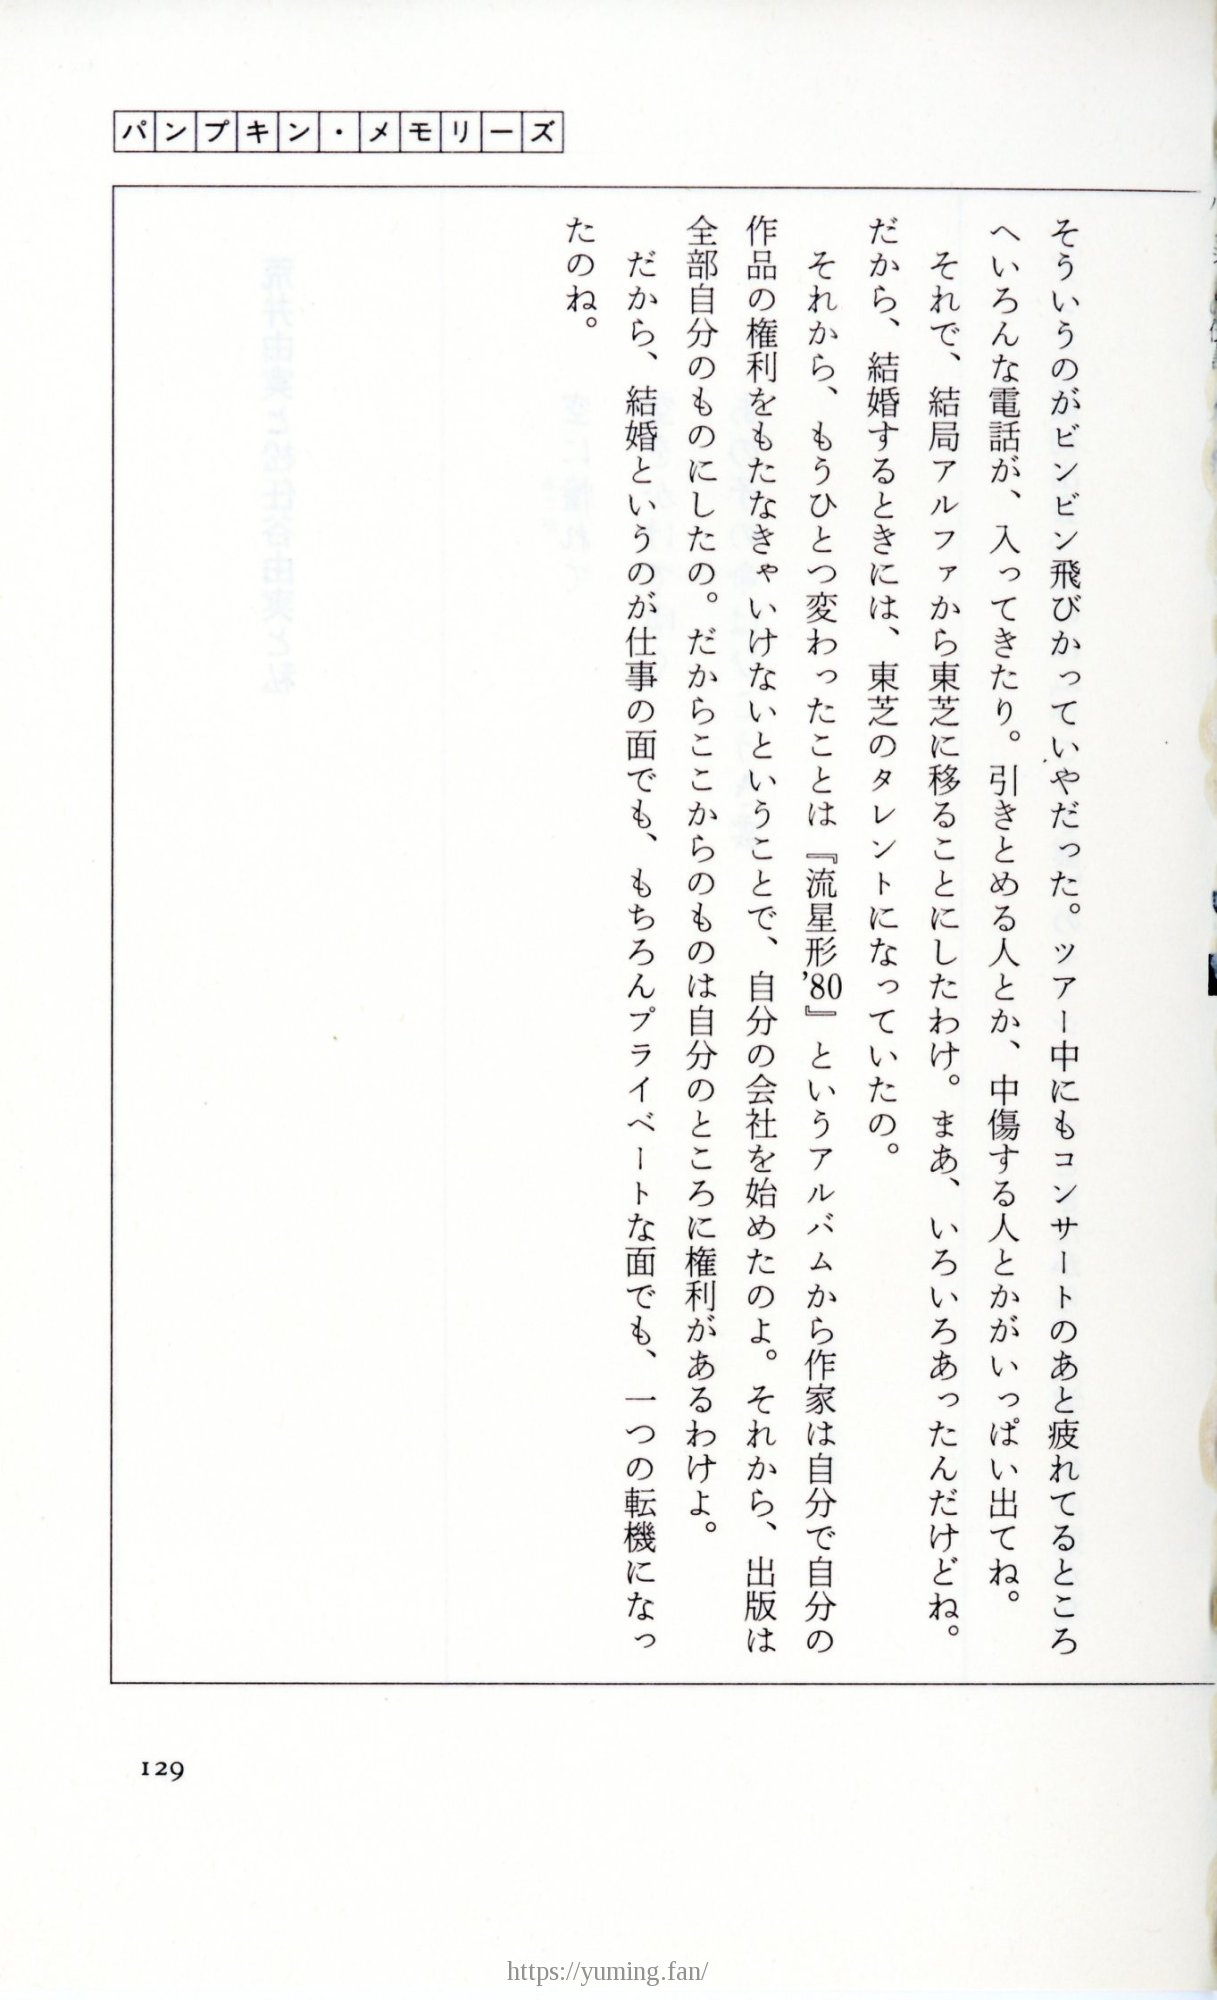 パンプキン・メモリーズ
そういうのがビンビン飛びかっていやだった。ツアー中にもコンサートのあと疲れてるところ
へいろんな電話が、入ってきたり。引きとめる人とか、中傷する人とかがいっぱい出てね。
それで、結局アルファから東芝に移ることにしたわけ。まあ、いろいろあったんだけどね。
だから、結婚するときには、東芝のタレントになっていたの。
それから、もうひとつ変わったことは『流星形'80』というアルバムから作家は自分で自分の
作品の権利をもたなきゃいけないということで、自分の会社を始めたのよ。それから、出版は
全部自分のものにしたの。だからここからのものは自分のところに権利があるわけよ。
だから、結婚というのが仕事の面でも、もちろんプライベートな面でも、一つの転機になっ
たのね。
129
https://yuming.fan/